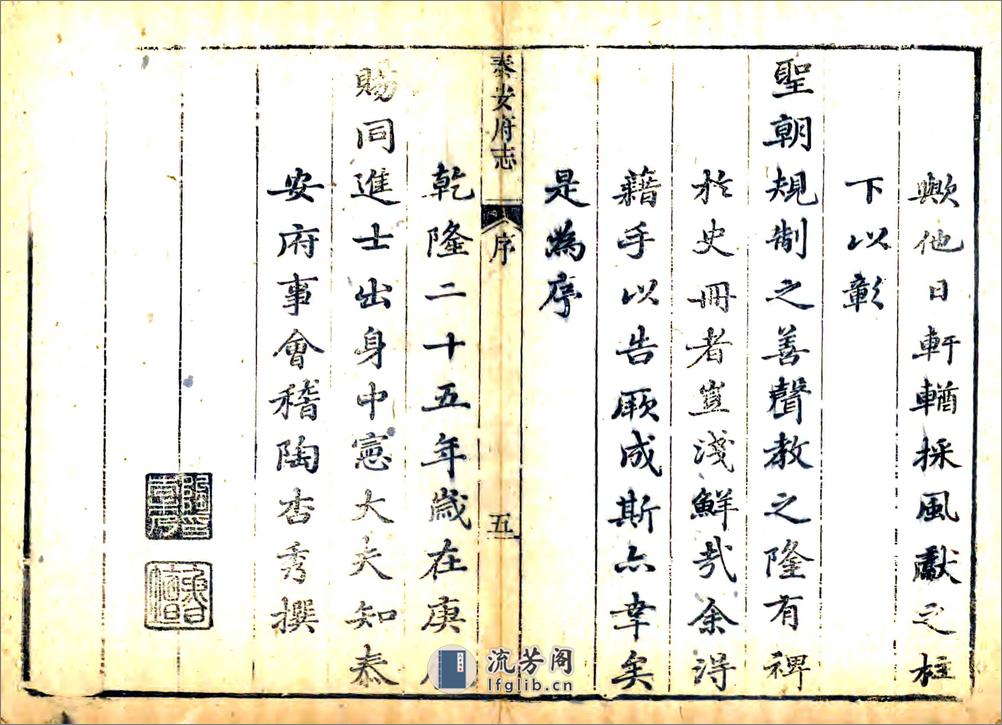 歟他日軒輶採風獻之柱
下以彰
聖朝規制之善聲教之隆有裨
於史冊者豈淺鮮哉余淂
藉手以告厥成斯亦幸矣
是為序
泰安府志
序
五
乾隆二十五年歲在庚
賜同進士出身中憲大夫知泰
安府事會稽陶杏秀撰
流芳阁
lfglib.cn